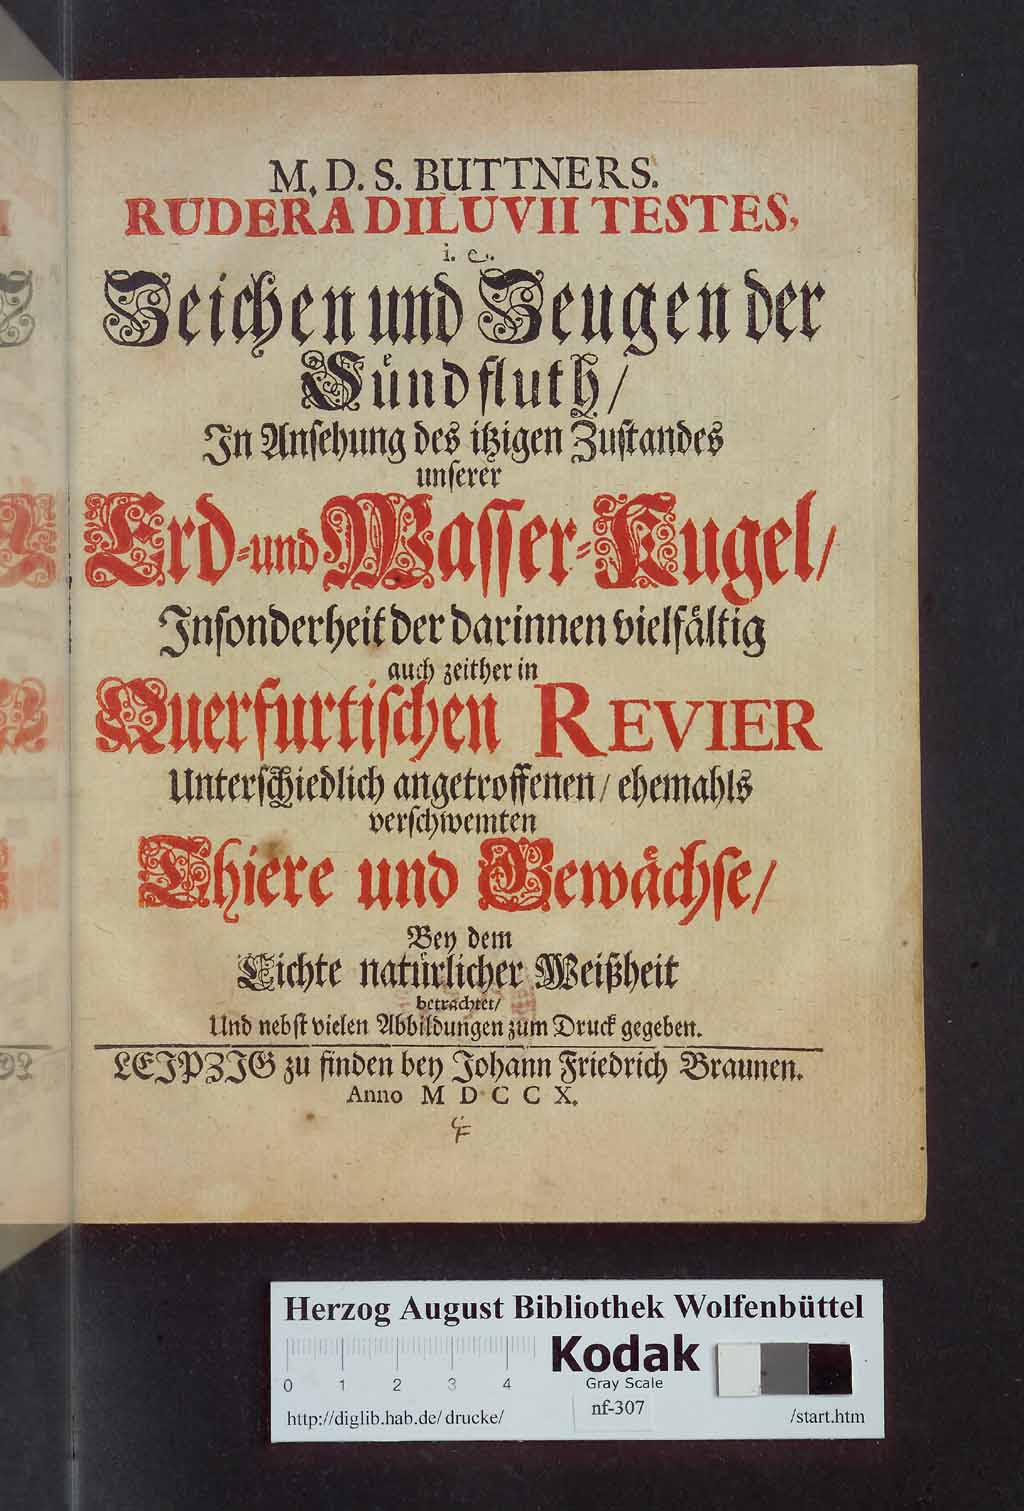 M. D. S. BUTTNERS.
RUDERA DILUVII TESTES,
i. e.
Zeichen und Zeugen der
Suͤndfluth/
In Ansehung des itzigen Zustandes
unserer
Erd-und Wasser-Kugel/
Insonderheit der darinnen vielfaͤltig
auch zeither in
Querfurtischen REVIER
Unterschiedlich angetroffenen/ ehemahls
verschwemten
Thiere und Gewaͤchse/
Bey dem
Lichte natuͤrlicher Weißheit
betrachtet/
Und nebst vielen Abbildungen zum Druck gegeben.
LEIPZIG zu finden bey Johann Friedrich Braunen.
Anno M D C C X.
Herzog August Bibliothek Wolfenbüttel
Kodak
Gray Scale
0 1 2 3 4
nf-307
http://diglib.hab.de/drucke/
/start.htm